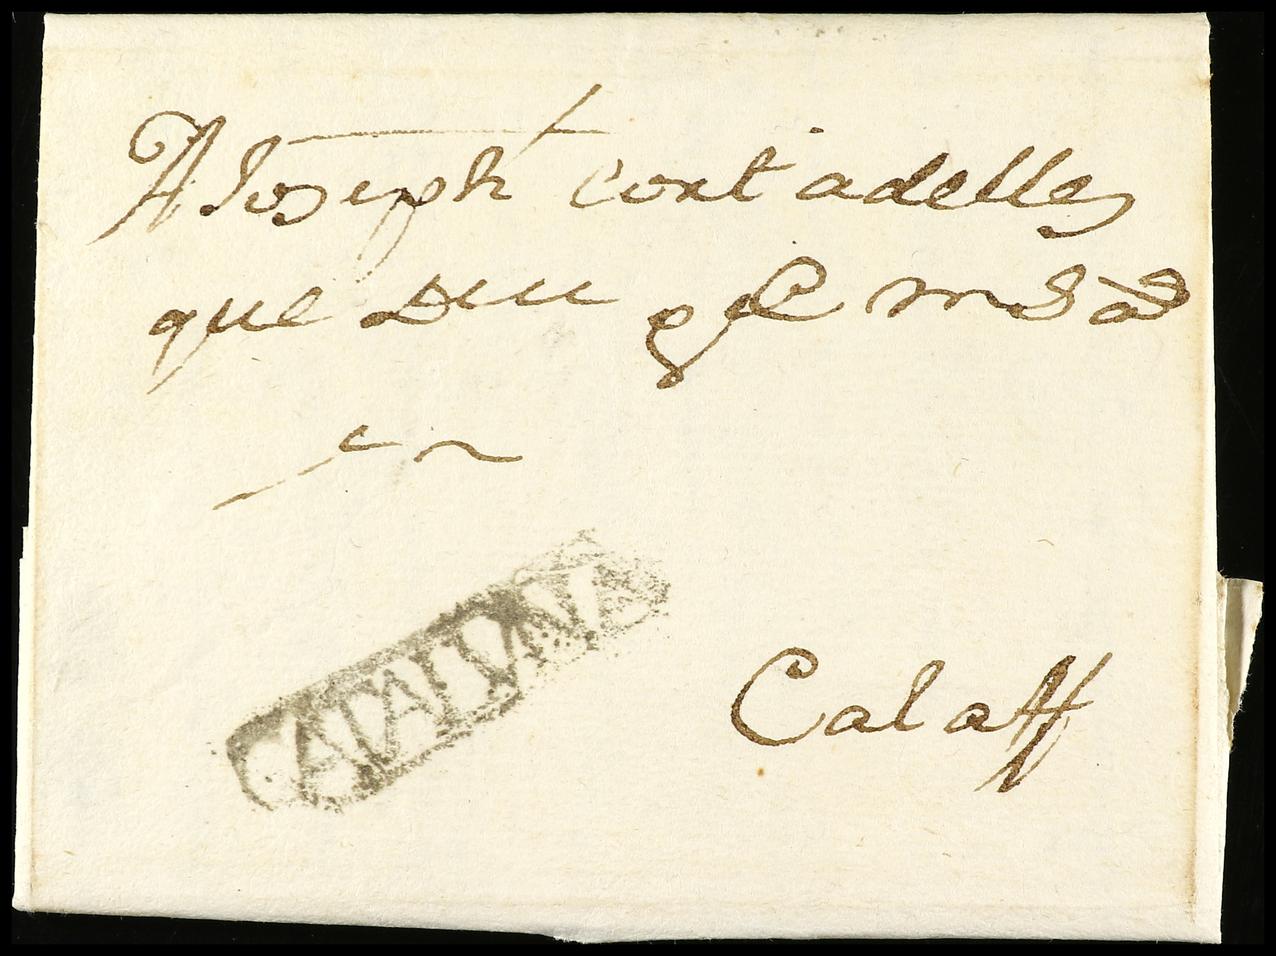 A Joseph cortadelles
que Deu gᵉ m
en
CATALUNA
Calaff